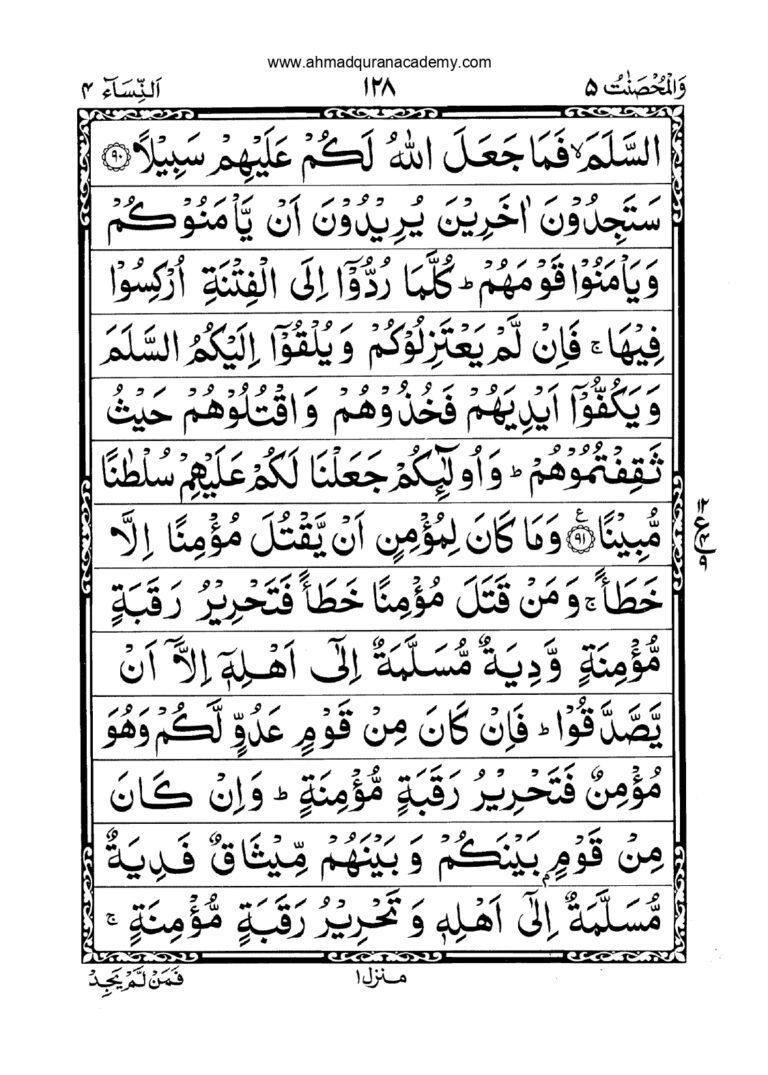 www.ahmadquranacademy.com
وَالْمُحْصَنٰتُ ۵
١٢٨
اَلنِّسَآء ۴
السَّلَمَ ۙ فَمَا جَعَلَ اللّٰهُ لَكُمْ عَلَيْهِمْ سَبِيْلًا ﴿۹۰﴾
سَتَجِدُوْنَ اٰخَرِيْنَ يُرِيْدُوْنَ اَنْ يَّاْمَنُوْكُمْ
وَيَاْمَنُوْا قَوْمَهُمْ ؕ كُلَّمَا رُدُّوْۤا اِلَى الْفِتْنَةِ اُرْكِسُوْا
فِيْهَا ۚ فَاِنْ لَّمْ يَعْتَزِلُوْكُمْ وَيُلْقُوْۤا اِلَيْكُمُ السَّلَمَ
وَيَكُفُّوْۤا اَيْدِيَهُمْ فَخُذُوْهُمْ وَاقْتُلُوْهُمْ حَيْثُ
ثَقِفْتُمُوْهُمْ ؕ وَاُولٰٓئِكُمْ جَعَلْنَا لَكُمْ عَلَيْهِمْ سُلْطٰنًا
مُّبِيْنًا ﴿۹۱﴾ ع وَمَا كَانَ لِمُؤْمِنٍ اَنْ يَّقْتُلَ مُؤْمِنًا اِلَّا
١٢ ع ۴ ۹
خَطَـًٔا ۚ وَمَنْ قَتَلَ مُؤْمِنًا خَطَـًٔا فَتَحْرِيْرُ رَقَبَةٍ
مُّؤْمِنَةٍ وَّدِيَةٌ مُّسَلَّمَةٌ اِلٰٓى اَهْلِهٖۤ اِلَّاۤ اَنْ
يَّصَّدَّقُوْا ؕ فَاِنْ كَانَ مِنْ قَوْمٍ عَدُوٍّ لَّكُمْ وَهُوَ
مُؤْمِنٌ فَتَحْرِيْرُ رَقَبَةٍ مُّؤْمِنَةٍ ؕ وَاِنْ كَانَ
مِنْ قَوْمٍۭ بَيْنَكُمْ وَبَيْنَهُمْ مِّيْثَاقٌ فَدِيَةٌ
مُّسَلَّمَةٌ اِلٰٓى اَهْلِهٖ وَتَحْرِيْرُ رَقَبَةٍ مُّؤْمِنَةٍ ۚ
منزل ١
فَمَنْ لَّمْ يَجِدْ